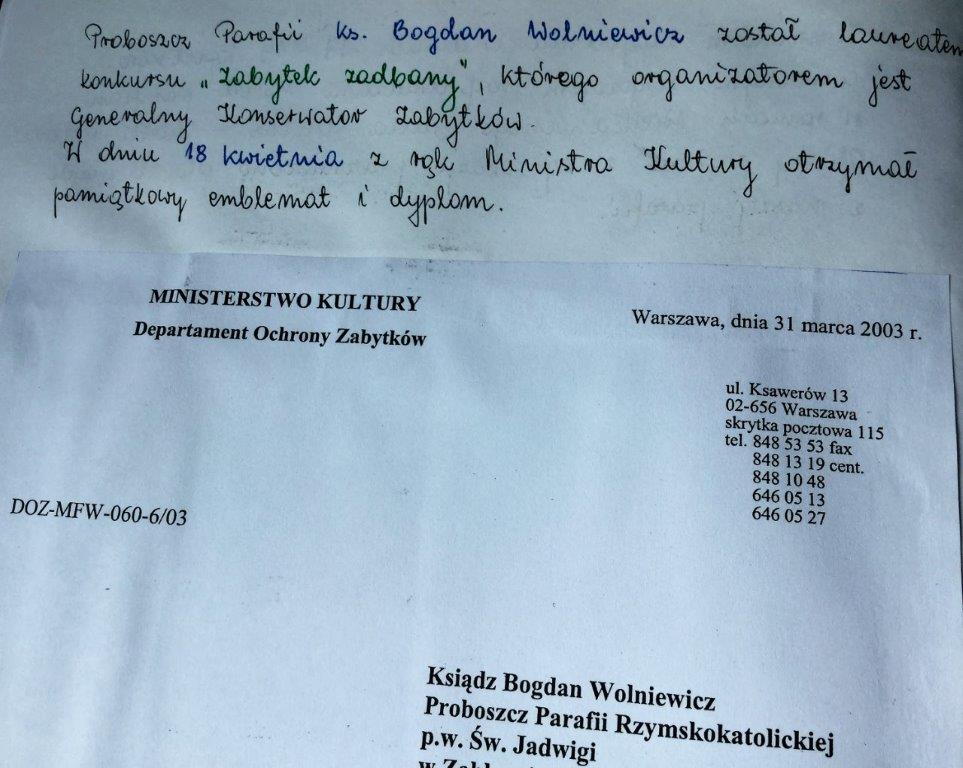 Proboszcz Parafii ks. Bogdan Wolniewicz został laureatem
konkursu „Zabytek zadbany", którego organizatorem jest
Generalny Konserwator Zabytków.
W dniu 18 kwietnia z rąk Ministra Kultury otrzymał
pamiątkowy emblemat i dyplom.
MINISTERSTWO KULTURY
Departament Ochrony Zabytków
Warszawa, dnia 31 marca 2003 r.
ul. Ksawerów 13
02-656 Warszawa
skrytka pocztowa 115
tel. 848 53 53 fax
848 13 19 cent.
848 10 48
646 05 13
646 05 27
DOZ-MFW-060-6/03
Ksiądz Bogdan Wolniewicz
Proboszcz Parafii Rzymskokatolickiej
p.w. Św. Jadwigi
w